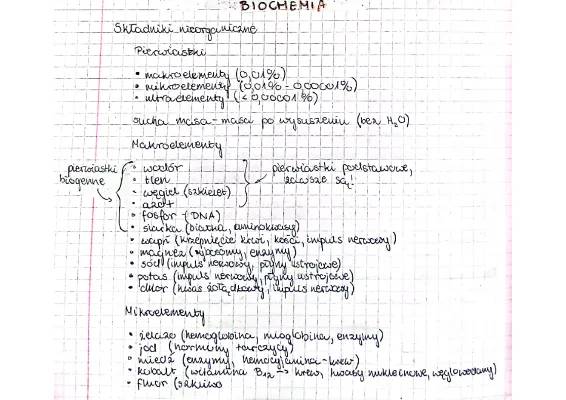 BIOCHEMIA
Składniki nieorganiczne
Pierwiastki
• makroelementy (0,01%)
• mikroelementy (0,01% - 0,00001%)
• ultraelementy (<0,00001%)
sucha masa - masa po wysuszeniu (bez H₂O)
Makroelementy
pierwiastki biogenne
• wodór
• tlen
• węgiel (szkielet)
• azot
pierwiastki podstawowe, zawsze są.
• fosfor (DNA)
• siarka (białka, aminokwasy)
• wapń (krzepnięcie krwi, kości, impuls nerwowy)
• magnez (rybosomy, enzymy)
• sód (impuls nerwowy, płyny ustrojowe)
• potas (impuls nerwowy, płyny ustrojowe)
• chlor (kwas żołądkowy, impuls nerwowy)
Mikroelementy
• żelazo (hemoglobina, mioglobina, enzymy)
• jod (hormony tarczycy)
• miedź (enzymy, hemocyjanina - krew)
• kobalt (witamina B₁₂ → krew, kwasy nukleinowe, węglowodany)
• fluor (szkliwo